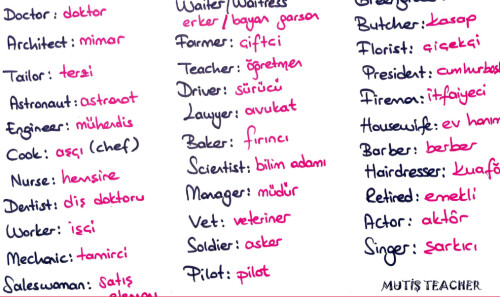 Doctor: doktor
Architect: mimar
Tailor: terzi
Astronaut: astronot
Engineer: mühendis
Cook: aşçı (chef)
Nurse: hemşire
Dentist: diş doktoru
Worker: işçi
Mechanic: tamirci
Saleswoman: satış
Waiter/Waitress
erkek/bayan garson
Farmer: çiftçi
Teacher: öğretmen
Driver: sürücü
Lawyer: avukat
Baker: fırıncı
Scientist: bilim adamı
Manager: müdür
Vet: veteriner
Soldier: asker
Pilot: pilot
Butcher: kasap
Florist: çiçekçi
President: cumhurbaşk
Fireman: itfaiyeci
Housewife: ev hanım
Barber: berber
Hairdresser: kuafö
Retired: emekli
Actor: aktör
Singer: şarkıcı
MUTİŞ TEACHER